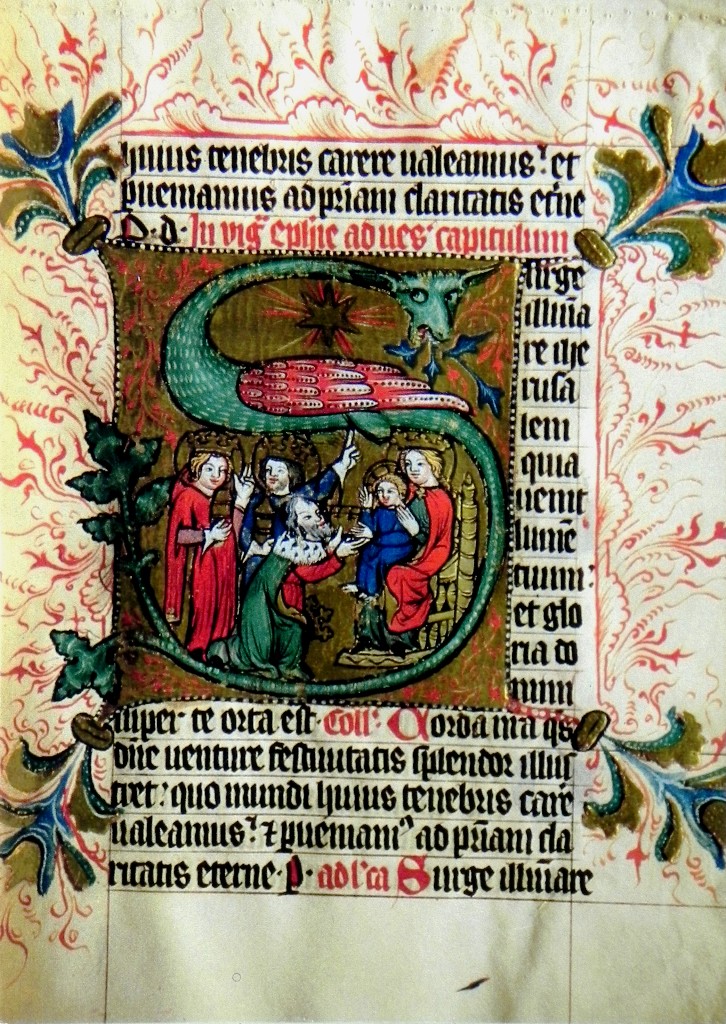 huius tenebris carere ualeamus. et
pueniamus ad priam claritatis etne
P. d. In vig Ephie ad ues capitulum
urge
illumi
re ihe
rusa
lem
quia
uenit
lume
tuum:
et glo
ria do
mini
super te orta est. Coll. Corda nra qs
dne uenture festiuitatis splendor illus
tret: quo mundi huius tenebris care
ualeamus. ⁊ pueniam ad priam cla
ritatis eterne. p. ad l'ca Surge illumiare